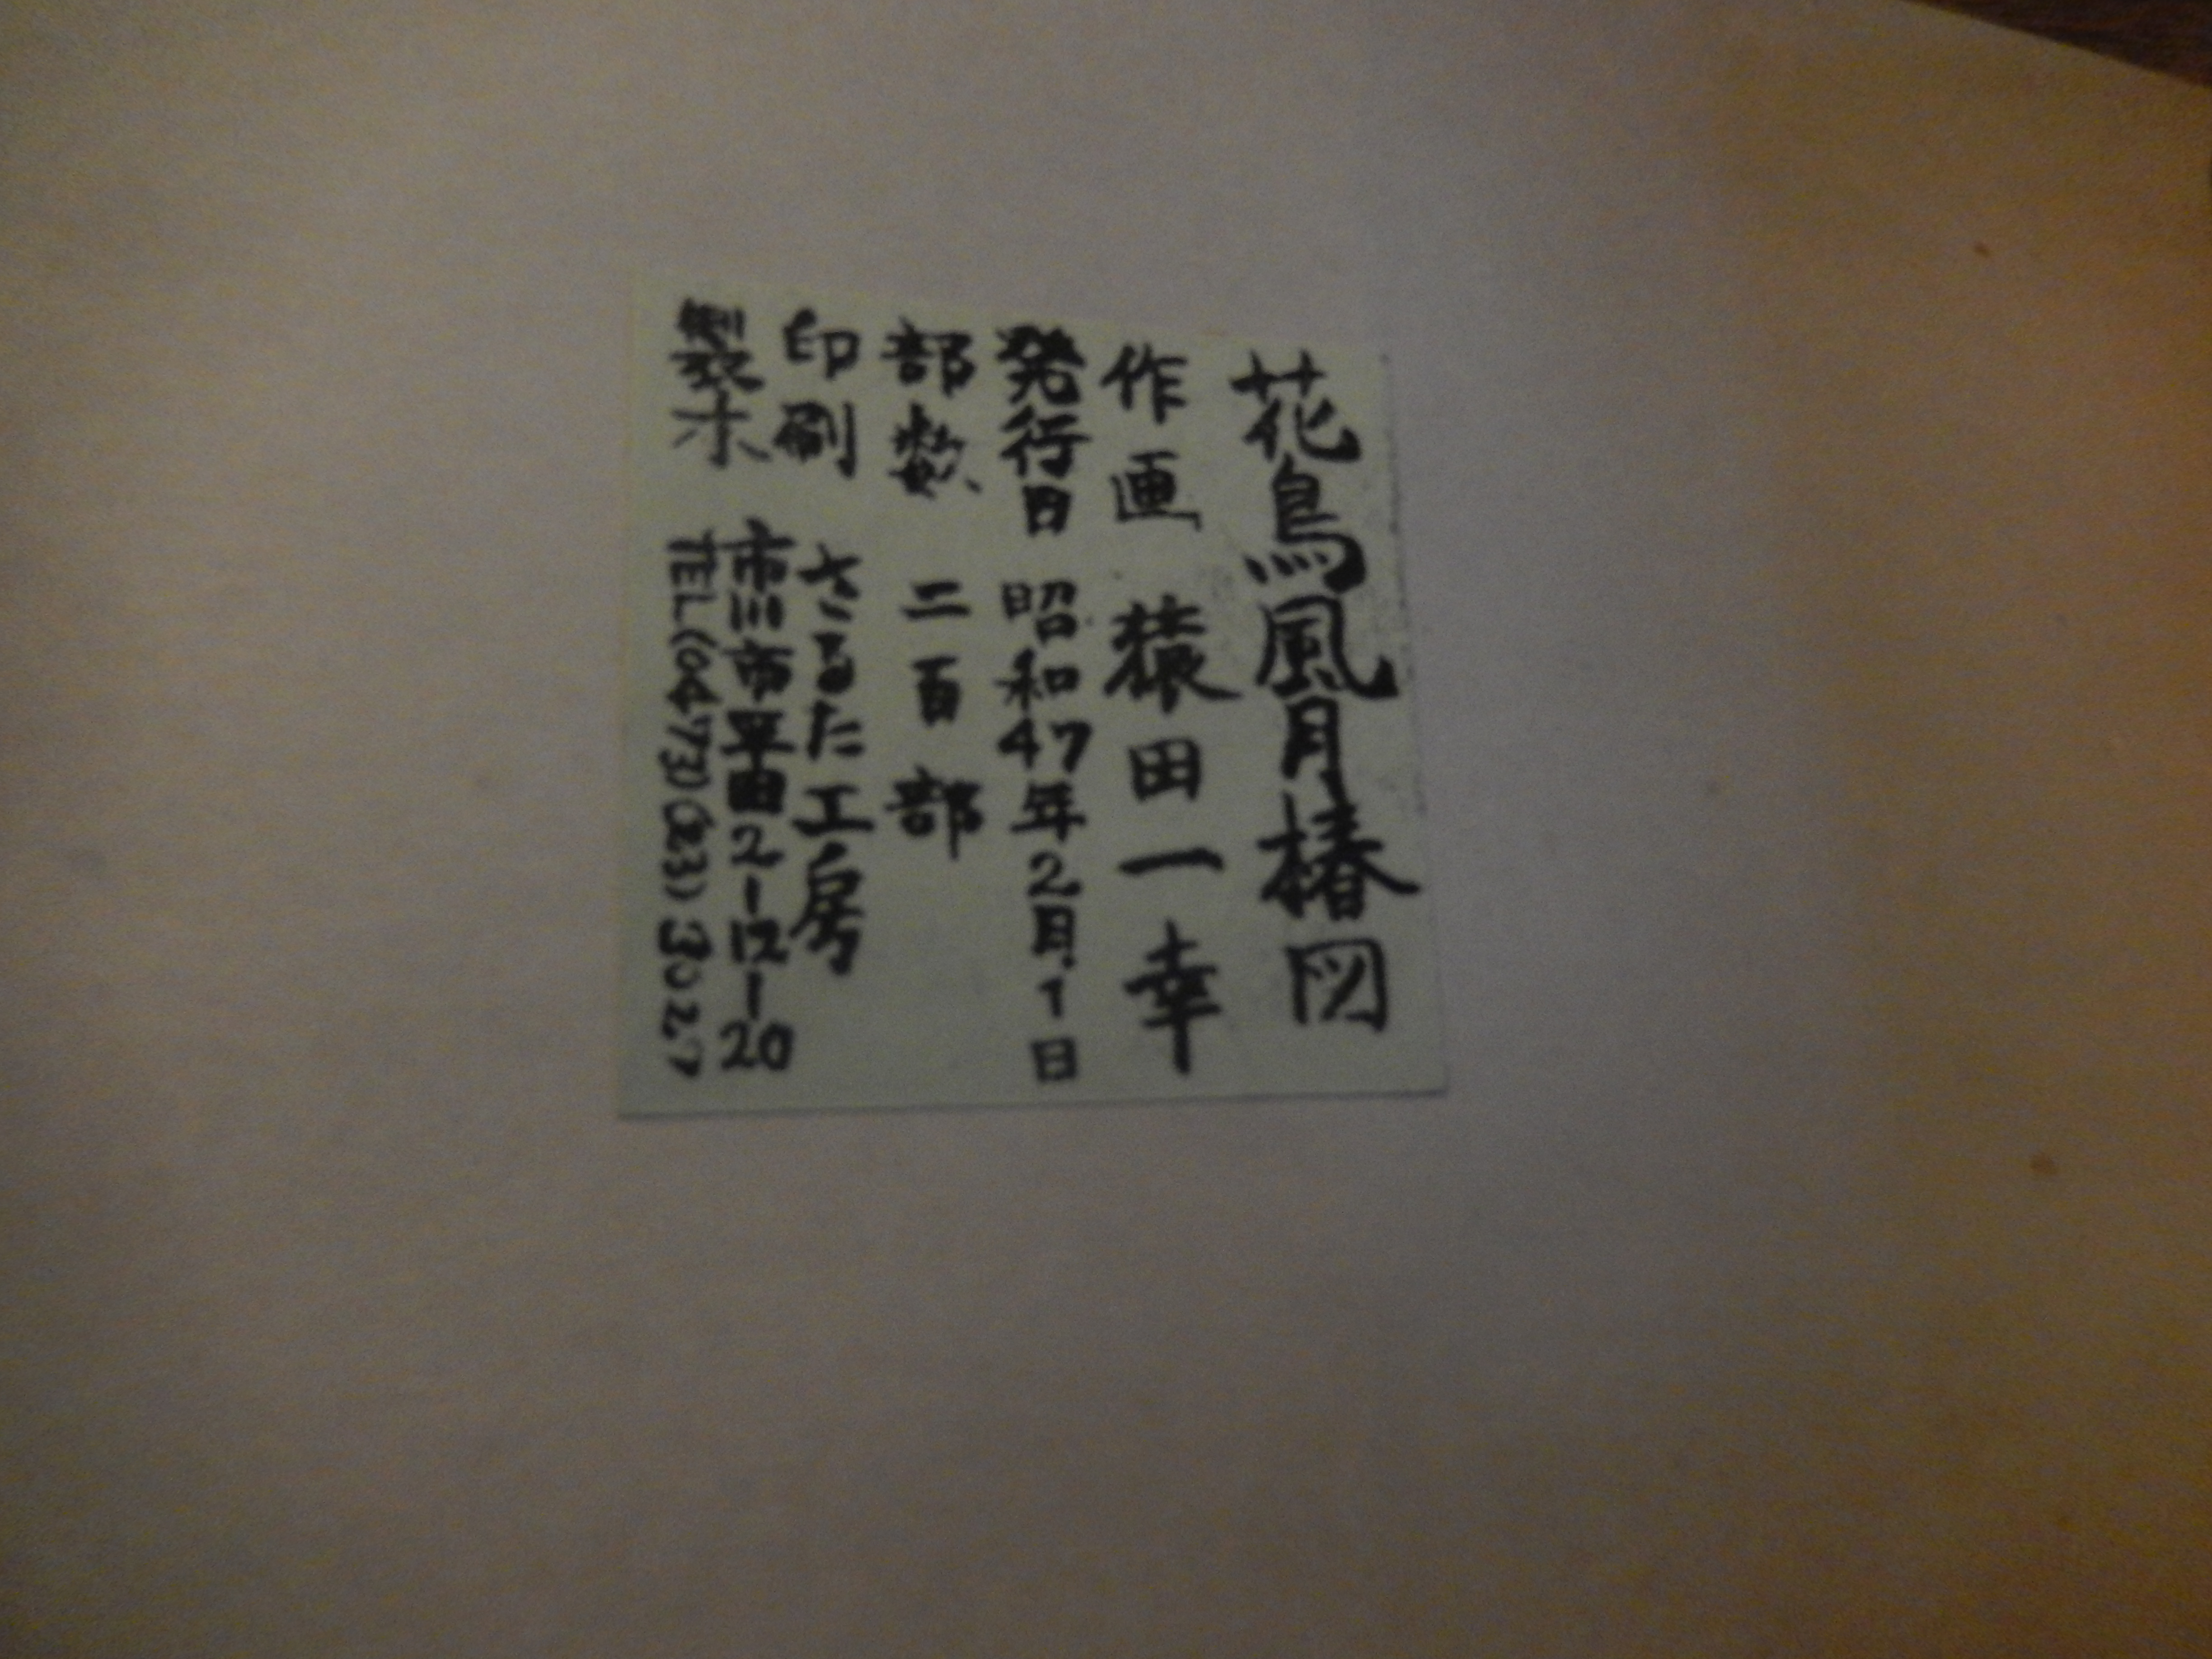 花鳥風月椿図
作画 猿田一幸
発行日 昭和47年2月1日
部数 二百部
印刷 さるた工房
製本 市川市平田2-12-20
TEL(0473)(23)3027